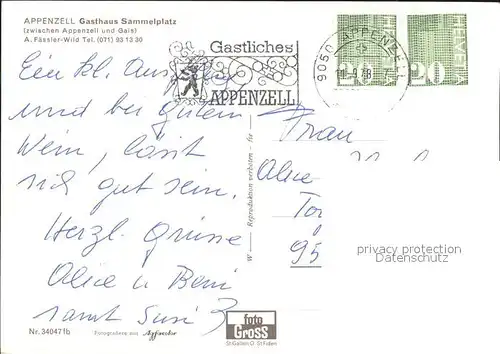 APPENZELL Gasthaus Sammelplatz
(zwischen Appenzell und Gais)
A. Fässler-Wild Tel. (071) 93 13 30
Gastliches
APPENZELL
9050 APPENZELL
HELVETIA
20
HELVETIA
20
Ein kl. Ausflug
und bei gutem
Wein, lässt
sich gut sein.
Herzl. Grüsse
Alice u Beni
samt Susi
Frau
Alice
95
W — Reproduktion verboten - für
privacy protection
Datenschutz
Nr. 340471b
foto
GROSS
St. Gallen O St. Fiden